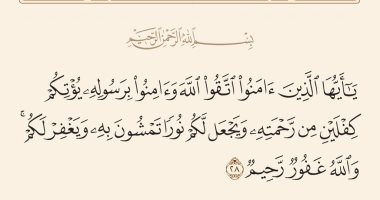 بِسْمِ ٱللَّهِ ٱلرَّحْمَٰنِ ٱلرَّحِيمِ
يَٰٓأَيُّهَا ٱلَّذِينَ ءَامَنُوا۟ ٱتَّقُوا۟ ٱللَّهَ وَءَامِنُوا۟ بِرَسُولِهِۦ يُؤْتِكُمْ
كِفْلَيْنِ مِن رَّحْمَتِهِۦ وَيَجْعَل لَّكُمْ نُورًا تَمْشُونَ بِهِۦ وَيَغْفِرْ لَكُمْ ۚ
وَٱللَّهُ غَفُورٌ رَّحِيمٌ ٢٨